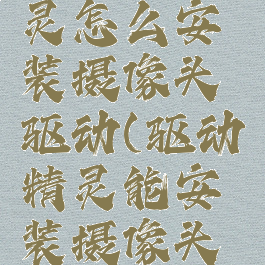 灵怎么安
装摄像头
驱动(驱动
精灵能安
装摄像头